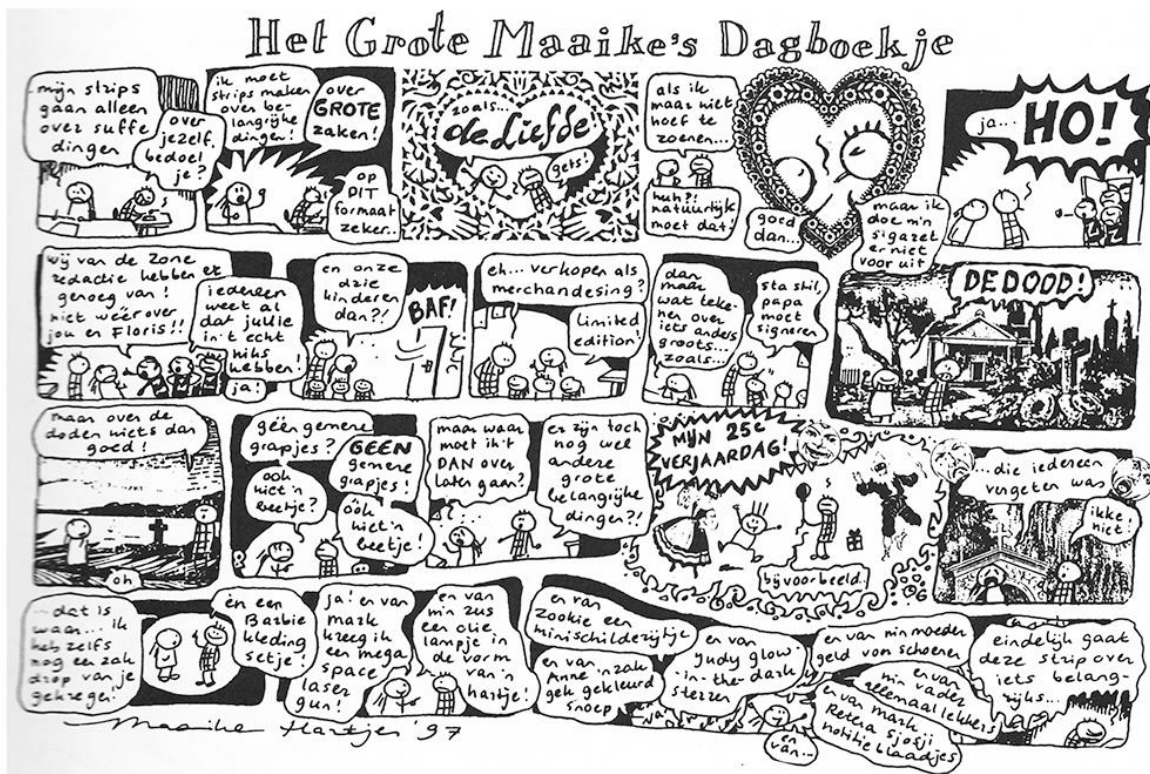 Het Grote Maaike's Dagboekje
mijn strips
gaan alleen
over suffe
dingen
over
jezelf,
bedoel
je?
ik moet
strips maken
over be-
langrijke
dingen!
over
GROTE
zaken!
op
DIT
formaat
zeker..
zoals...
de Liefde
gets!
als ik
maar niet
hoef te
zoenen...
huh?!
natuurlijk
moet dat,
goed
dan...
maar ik
doe m'n
sigaret
er niet
voor uit
ja...
HO!
wij van de Zone
redactie hebben er
genoeg van!
niet wéér over
jou en Floris!!
iedereen
weet al
dat jullie
in 't echt
niks
hebben!
ja!
en onze
drie
kinderen
dan?!
BAF!
eh... verkopen als
merchandesing?
limited
edition!
dan
maar
wat teke-
nen over
iets anders
groots...
zoals...
sta stil,
papa
moet
signeren
DE DOOD!
maar over de
doden niets dan
goed!
oh
géén gemene
grapjes?
GEEN
gemene
grapjes!
óók
niet 'n
beetje?
óók
niet 'n
beetje!
maar waar
moet ik 't
DAN over
laten gaan?
er zijn toch
nog wel
andere
grote
belangrijke
dingen?!
MIJN 25e
VERJAARDAG!
bijvoorbeeld..
...die iedereen
vergeten was
ikke
niet!
...dat is
waar... ik
heb zelfs
nog een zak
drop van je
gekregen!
èn een
Barbie
kleding
setje!
ja! en van
mark
kreeg ik
een mega
space
laser
gun!
en van
m'n zus
een olie
lampje in
de vorm
van 'n
hartje!
en van
Zookie een
minischilderijtje
en van
Anne 'n zak
gek gekleurd
snoep
en van
Judy glow-
in-the-dark
sterren
en
van...
en van m'n moeder
geld voor schoenen
en van
m'n vader
allemaal lekkers
en van mark
Retera Sjosji
notitie blaadjes
eindelijk gaat
deze strip over
iets belang-
rijks...
Maaike Hartjes '97